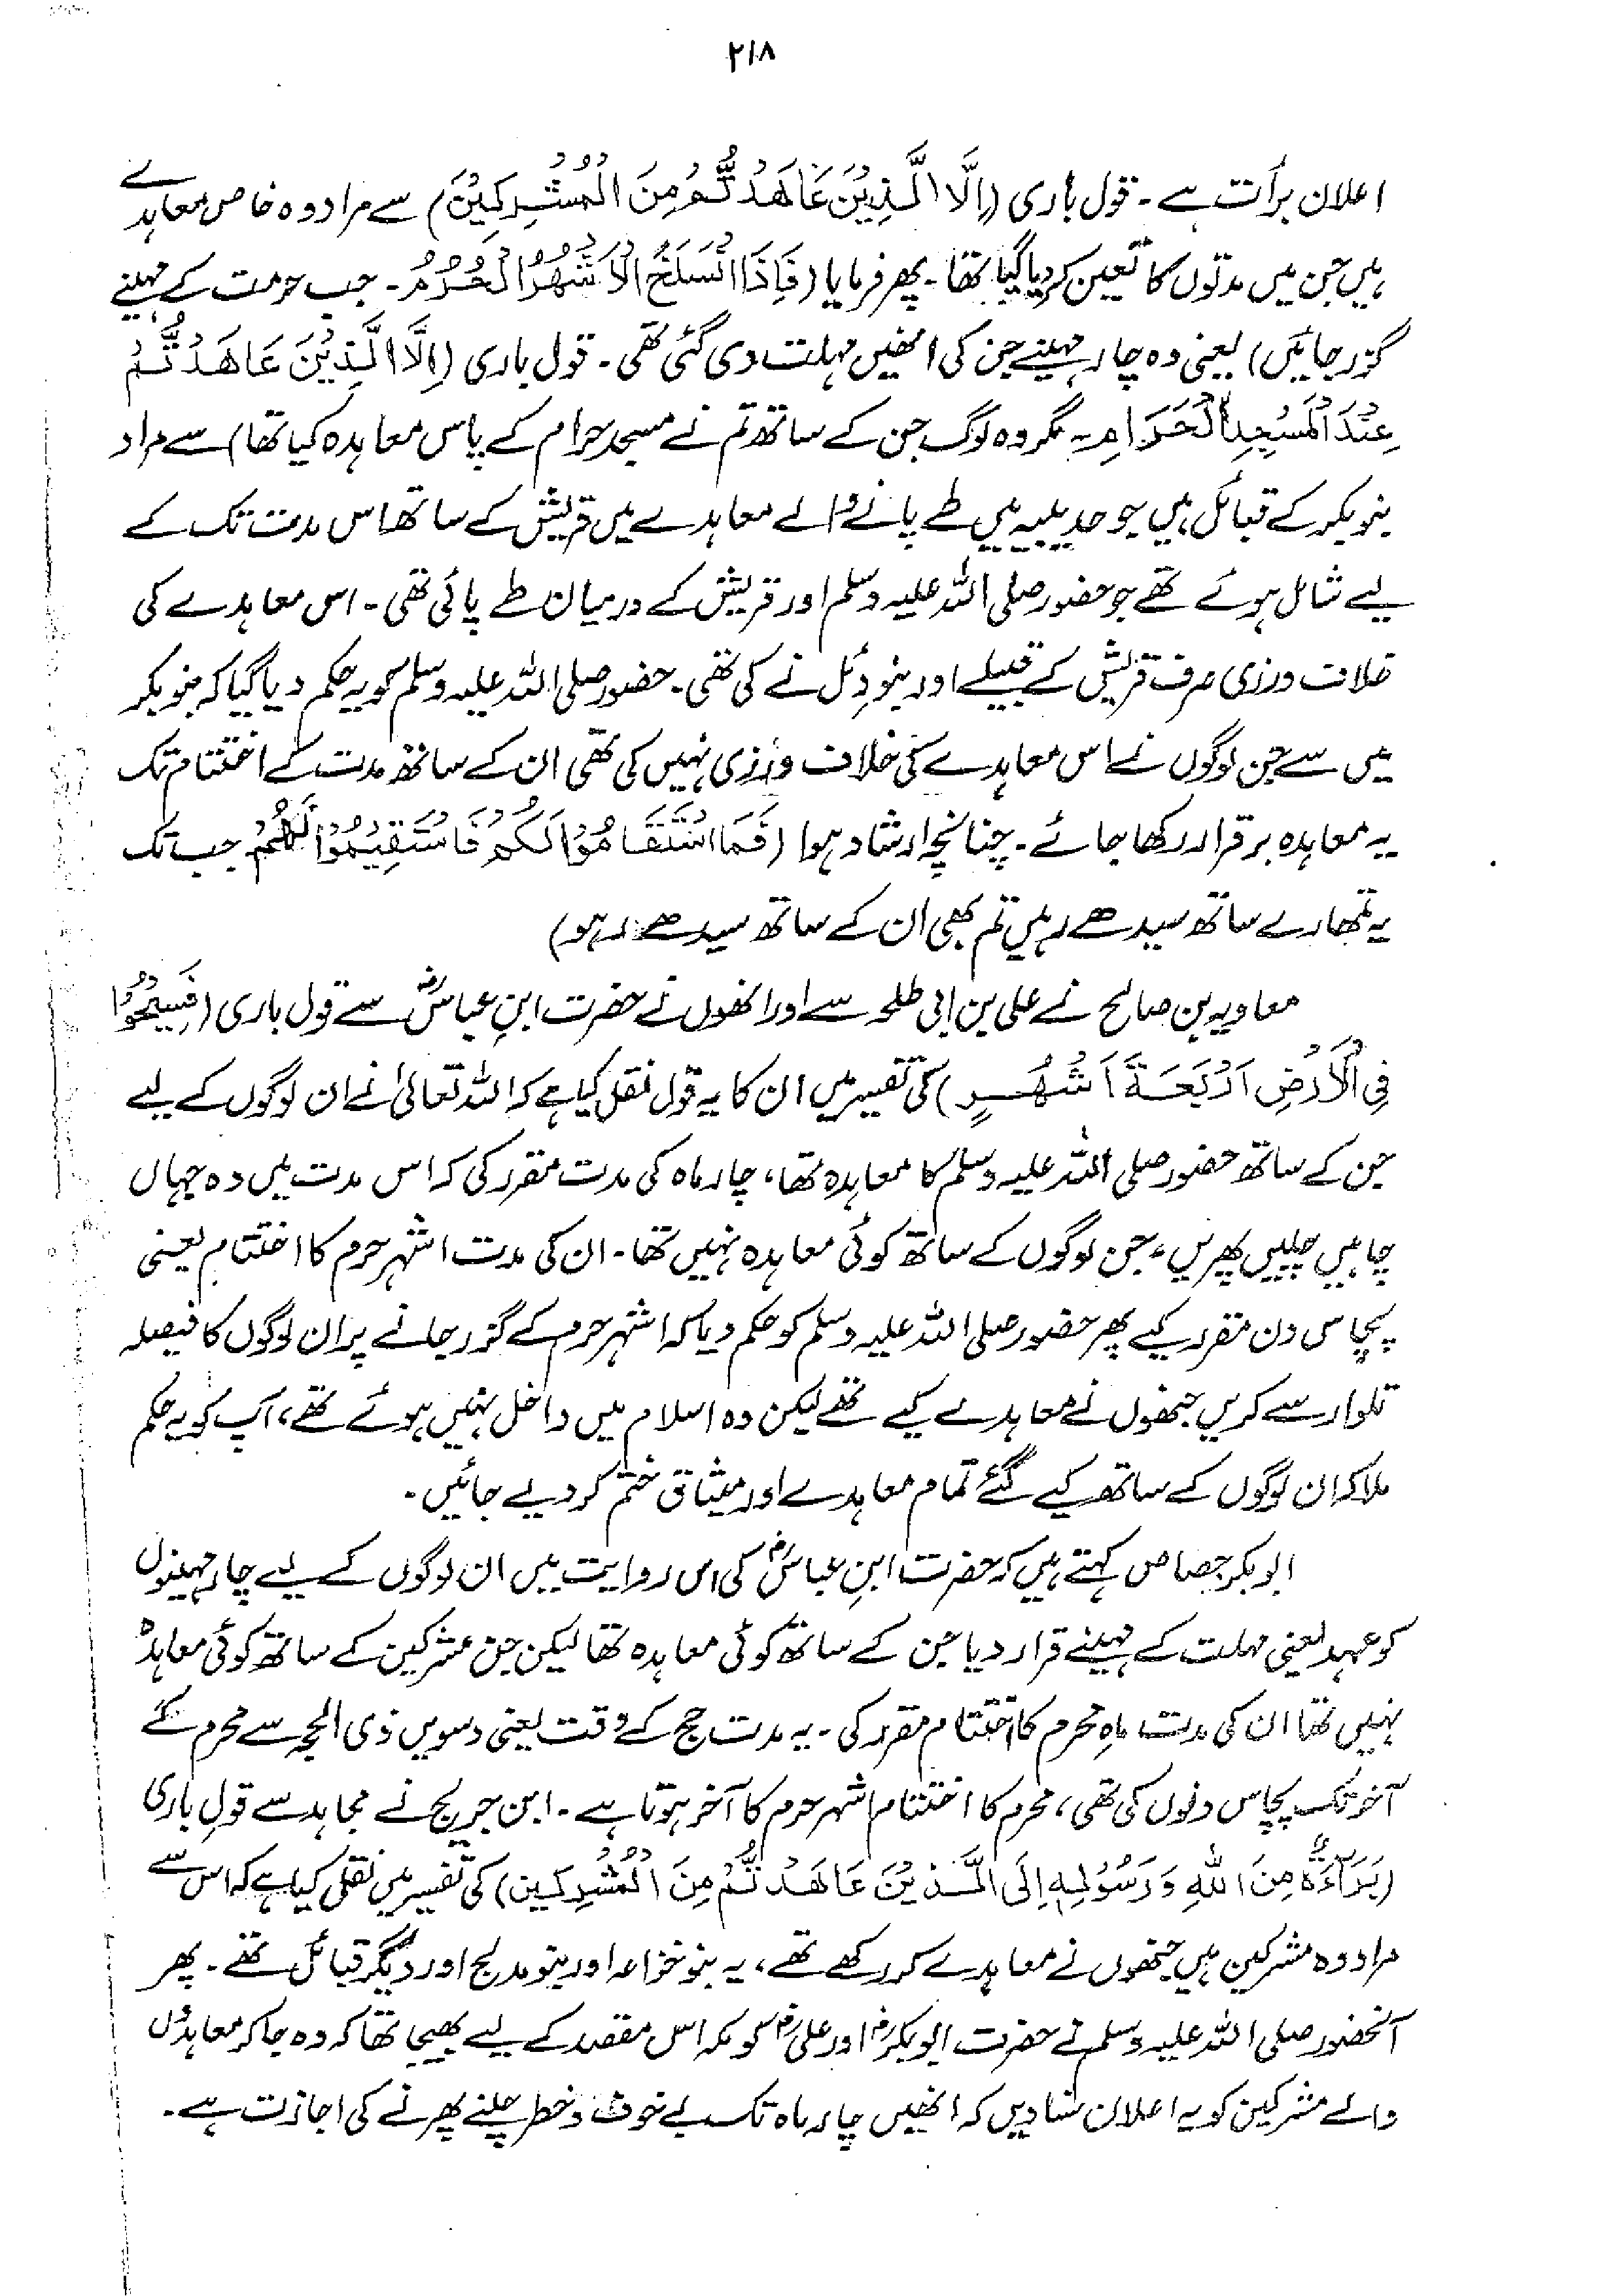 ۲۱۸
اعلان برأت ہے۔ قول باری (اِلَّا الَّذِیْنَ عَاھَدْتُّمْ مِنَ الْمُشْرِکِیْنَ) سے مراد وہ خاص معاہدے
ہیں جن میں مدتوں کا تعین کر دیا گیا تھا۔ پھر فرمایا (فَاِذَا انْسَلَخَ الْاَشْھُرُ الْحُرُمُ۔ جب حرمت کے مہینے
گزر جائیں) یعنی وہ چار مہینے جن کی انھیں مہلت دی گئی تھی۔ قول باری (اِلَّا الَّذِیْنَ عَاھَدْتُّمْ
عِنْدَ الْمَسْجِدِ الْحَرَامِ۔ مگر وہ لوگ جن کے ساتھ تم نے مسجد حرام کے پاس معاہدہ کیا تھا) سے مراد
بنو بکر کے قبائل ہیں جو حدیبیہ میں طے پانے والے معاہدے میں قریش کے ساتھ اس مدت تک کے
لیے شامل ہوئے تھے جو حضور صلی اللہ علیہ وسلم اور قریش کے درمیان طے پائی تھی۔ اس معاہدے کی
خلاف ورزی صرف قریش کے قبیلے اور بنو دِئل نے کی تھی۔ حضور صلی اللہ علیہ وسلم کو یہ حکم دیا گیا کہ بنو بکر
میں سے جن لوگوں نے اس معاہدے کی خلاف ورزی نہیں کی تھی ان کے ساتھ مدت کے اختتام تک
یہ معاہدہ برقرار رکھا جائے۔ چنانچہ ارشاد ہوا (فَمَا اسْتَقَامُوْا لَکُمْ فَاسْتَقِیْمُوْا لَھُمْ جب تک
یہ تمھارے ساتھ سیدھے رہیں تم بھی ان کے ساتھ سیدھے رہو)
معاویہ بن صالح نے علی بن ابی طلحہ سے اور انھوں نے حضرت ابنِ عباسؓ سے قول باری (فَسِیْحُوْا
فِی الْاَرْضِ اَرْبَعَۃَ اَشْھُرٍ) کی تفسیر میں ان کا یہ قول نقل کیا ہے کہ اللہ تعالیٰ نے ان لوگوں کے لیے
جن کے ساتھ حضور صلی اللہ علیہ وسلم کا معاہدہ تھا، چار ماہ کی مدت مقرر کی کہ اس مدت میں وہ جہاں
چاہیں چلیں پھریں، جن لوگوں کے ساتھ کوئی معاہدہ نہیں تھا۔ ان کی مدت اشہر حرم کا اختتام یعنی
پچاس دن مقرر کیے پھر حضور صلی اللہ علیہ وسلم کو حکم دیا کہ اشہر حرم کے گزر جانے پر ان لوگوں کا فیصلہ
تلوار سے کریں جنھوں نے معاہدے کیے تھے لیکن وہ اسلام میں داخل نہیں ہوئے تھے، آپ کو یہ حکم
ملا کہ ان لوگوں کے ساتھ کیے گئے تمام معاہدے اور میثاق ختم کر دیے جائیں۔
ابوبکر جصاص کہتے ہیں کہ حضرت ابنِ عباسؓ کی اس روایت میں ان لوگوں کے لیے چار مہینوں
کو عہد یعنی مہلت کے مہینے قرار دیا جن کے ساتھ کوئی معاہدہ تھا لیکن جن مشرکین کے ساتھ کوئی معاہدہ
نہیں تھا ان کی مدت ماہِ محرم کا اختتام مقرر کی۔ یہ مدت حج کے وقت یعنی دسویں ذی الحجہ سے محرم کے
آخر تک پچاس دنوں کی تھی، محرم کا اختتام اشہر حرم کا آخر ہوتا ہے۔ ابن جریج نے مجاہد سے قولِ باری
(بَرَآءَۃٌ مِنَ اللہِ وَرَسُوْلِہٖ اِلَی الَّذِیْنَ عَاھَدْتُّمْ مِنَ الْمُشْرِکِین) کی تفسیر میں نقل کیا ہے کہ اس سے
مراد وہ مشرکین ہیں جنھوں نے معاہدے کر رکھے تھے، یہ بنو خزاعہ اور بنو مدلج اور دیگر قبائل تھے۔ پھر
آنحضور صلی اللہ علیہ وسلم نے حضرت ابوبکرؓ اور علیؓ کو مکہ اس مقصد کے لیے بھیجا تھا کہ وہ جا کر معاہدوں
والے مشرکین کو یہ اعلان سنا دیں کہ انھیں چار ماہ تک بے خوف و خطر چلنے پھرنے کی اجازت ہے۔